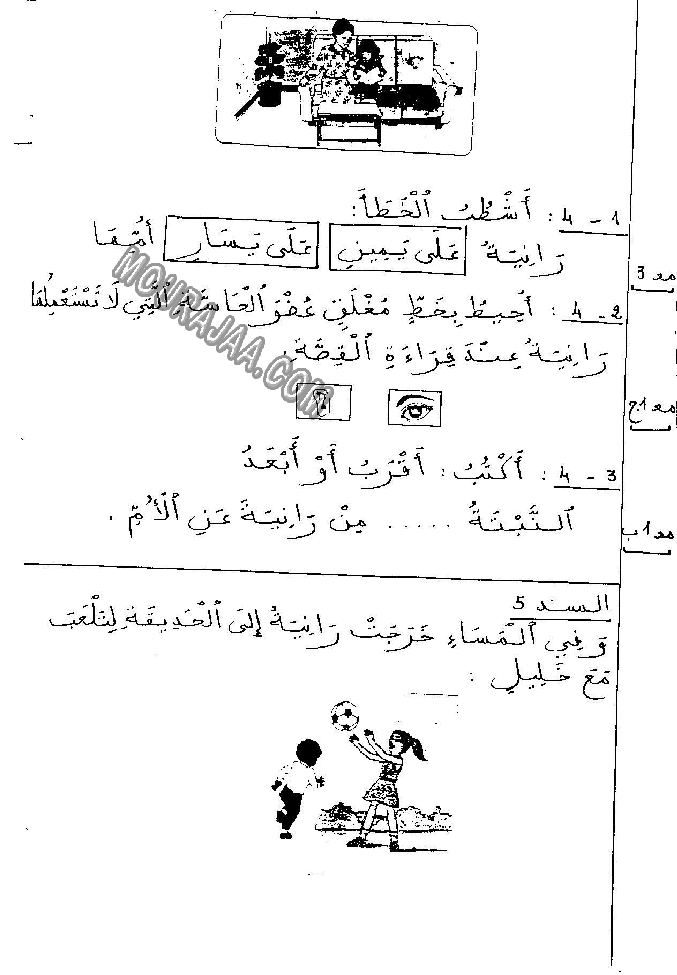 4 - 1 : أَشْطُبُ الْخَطَأَ:
رَانِيَةُ عَلَى يَمِينِ عَلَى يَسَارِ أُمِّهَا
مع 3
4 - 2 : أُحِيطُ بِخَطٍّ مُغْلَقٍ عُضْوَ الْحَاسَّةِ الَّتِي لَا تَسْتَعْمِلُهَا
رَانِيَةُ عِنْدَ قِرَاءَةِ الْقِصَّةِ.
مع 1ج
4 - 3 : أَكْتُبُ : أَقْرَبُ أَوْ أَبْعَدُ
النَّبْتَةُ ..... مِنْ رَانِيَةَ عَنِ الْأُمِّ .
مع 1ب
السند 5
وَ فِي الْمَسَاءِ خَرَجَتْ رَانِيَةُ إِلَى الْحَدِيقَةِ لِتَلْعَبَ
مَعَ خَلِيلٍ :
MOURAJAA.COM